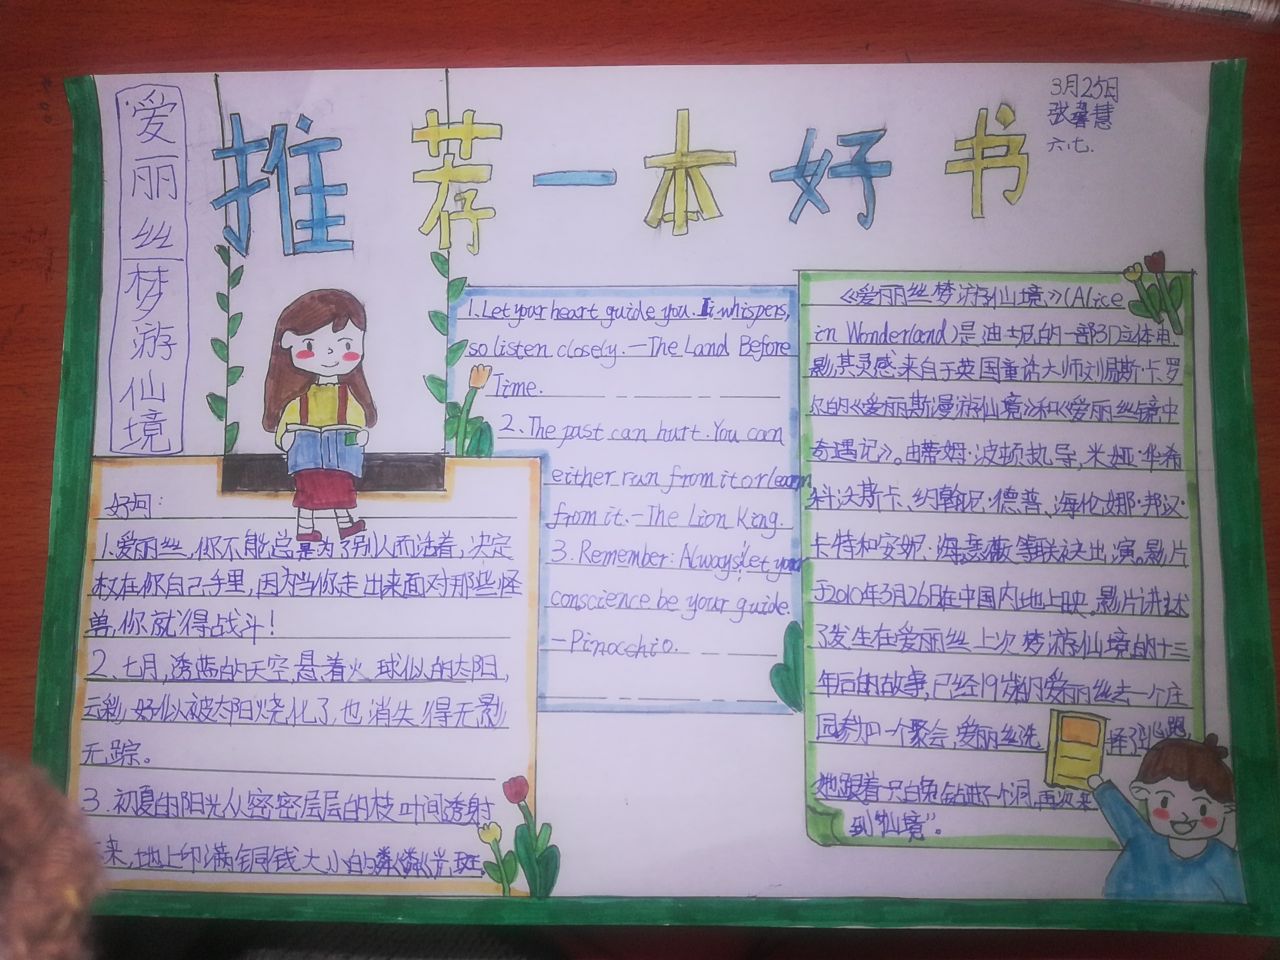 爱丽丝梦游仙境
推荐一本好书
3月25日
张馨慧
六.七.
好句:
1.爱丽丝,你不能总是为了别人而活着,决定
权在你自己手里,因为当你走出来面对那些怪
兽,你就得战斗!
2.七月,透蓝的天空,悬着火球似的太阳,
云彩好似被太阳烧化了,也消失得无影
无踪。
3.初夏的阳光从密密层层的枝叶间透射
来,地上印满铜钱大小的粼粼光斑。
1.Let your heart guide you. It whispers,
so listen closely.—The Land Before
Time.
2.The past can hurt. You can
either run from it or learn
from it.—The Lion King.
3. Remember: Always let your
conscience be your guide.
—Pinocchio.
《爱丽丝梦游仙境》(Alice
in Wonderland)是迪士尼的一部3D立体电
影,其灵感来自于英国童话大师刘易斯·卡罗
尔的《爱丽斯漫游仙境》和《爱丽丝镜中
奇遇记》。由蒂姆·波顿执导,米娅·华希
科沃斯卡、约翰尼·德普、海伦娜·邦汉·
卡特和安妮·海瑟薇等联袂出演。影片
于2010年3月26日在中国内地上映。影片讲述
了发生在爱丽丝上次梦游仙境的十三
年后的故事,已经19岁的爱丽丝去一个庄
园参加一个聚会,爱丽丝选择了逃跑,
她跟着一只白兔钻进了一个洞,再次来
到"仙境"。